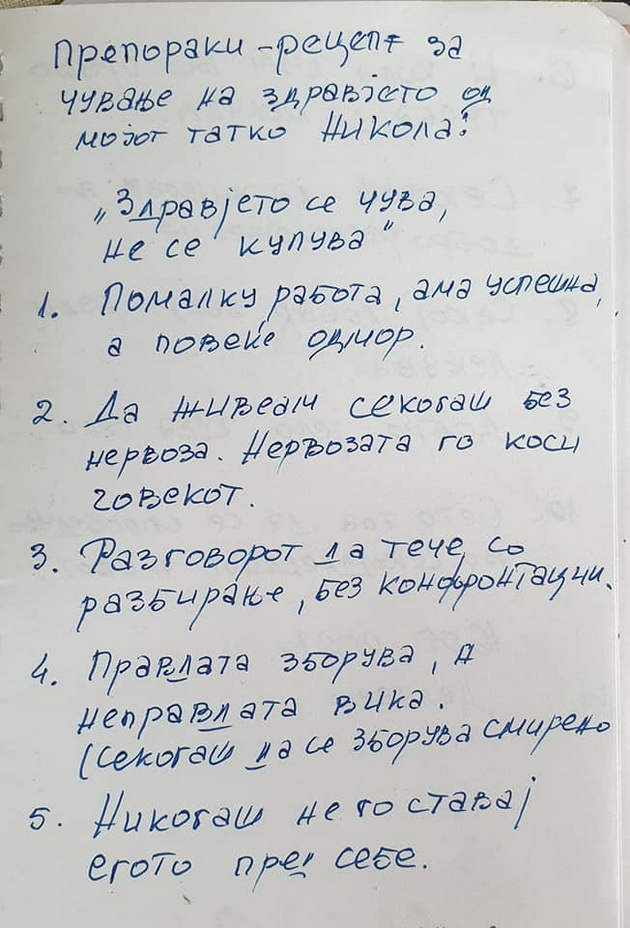 Препораки - рецепт за
чување на здравјето од
мојот татко Никола:
„Здравјето се чува,
не се купува"
1. Помалку работа, ама успешна,
а повеќе одмор.
2. Да живееш секогаш без
нервоза. Нервозата го коси
човекот.
3. Разговорот да тече со
разбирање, без конфронтации.
4. Правдата зборува, а
неправдата вика.
(секогаш да се зборува смирено
5. Никогаш не го ставај
егото пред себе.